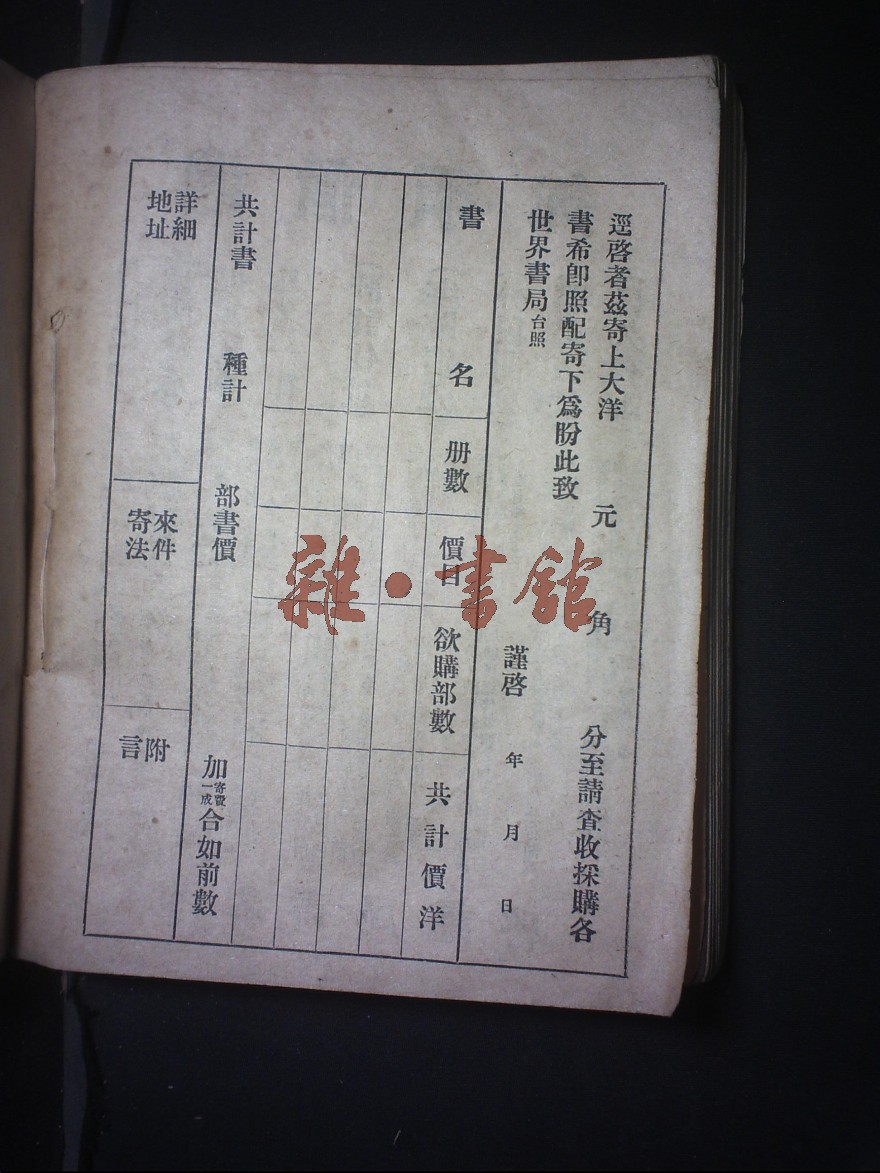 逕啓者茲寄上大洋 元 角 分至請查收採購各
書希卽照配寄下爲盼此致
世界書局台照
謹啓 年 月 日
書名 册數 價目 欲購部數 共計價洋
共計書 種計 部書價 加寄費一成合如前數
詳細地址 來件寄法 附言
雜·書館